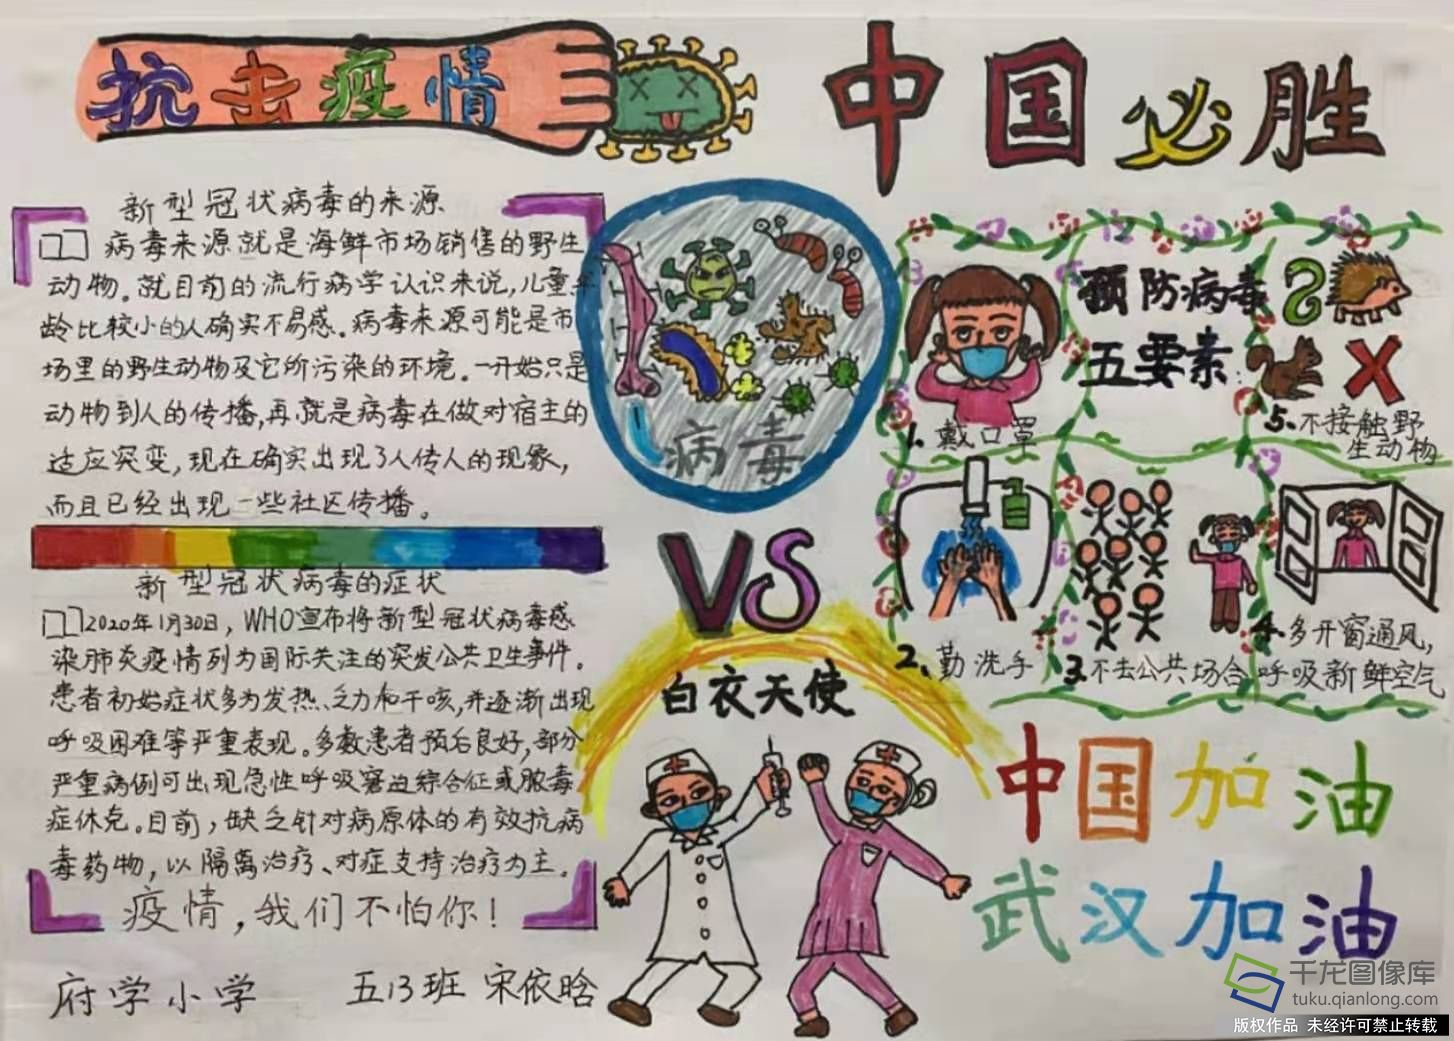 抗击疫情
中国必胜
新型冠状病毒的来源
病毒来源就是海鲜市场销售的野生
动物。就目前的流行病学认识来说,儿童年
龄比较小的人确实不易感。病毒来源可能是市
场里的野生动物及它所污染的环境。一开始只是
动物到人的传播,再就是病毒在做对宿主的
适应突变,现在确实出现了人传人的现象,
而且已经出现一些社区传播。
新型冠状病毒的症状
2020年1月30日,WHO宣布将新型冠状病毒感
染肺炎疫情列为国际关注的突发公共卫生事件。
患者初始症状多为发热、乏力和干咳,并逐渐出现
呼吸困难等严重表现。多数患者预后良好,部分
严重病例可出现急性呼吸窘迫综合征或脓毒
症休克。目前,缺乏针对病原体的有效抗病
毒药物,以隔离治疗、对症支持治疗为主。
疫情,我们不怕你!
府学小学 五13班 宋依晗
病毒
VS
白衣天使
预防病毒
五要素
1、戴口罩
2、勤洗手
3、不去公共场合
4、多开窗通风,
呼吸新鲜空气
5、不接触野
生动物
中国加油
武汉加油
千龙图像库
tuku.qianlong.com
版权作品 未经许可禁止转载